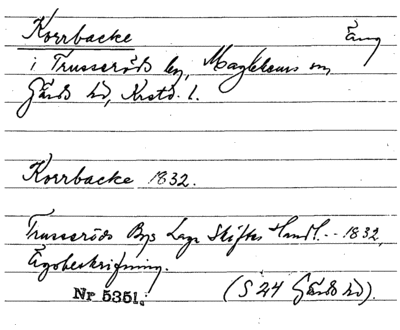 Korrbacke Äng
i Trusseröds by, Maglehems sn,
Gärds hd, Krstd. l.
Korrbacke 1832.
Trusseröds Bys Laga Skiftes Handl. -- 1832,
Ägobeskrifning.
Nr 5351.
(S 24 Gärds hd).